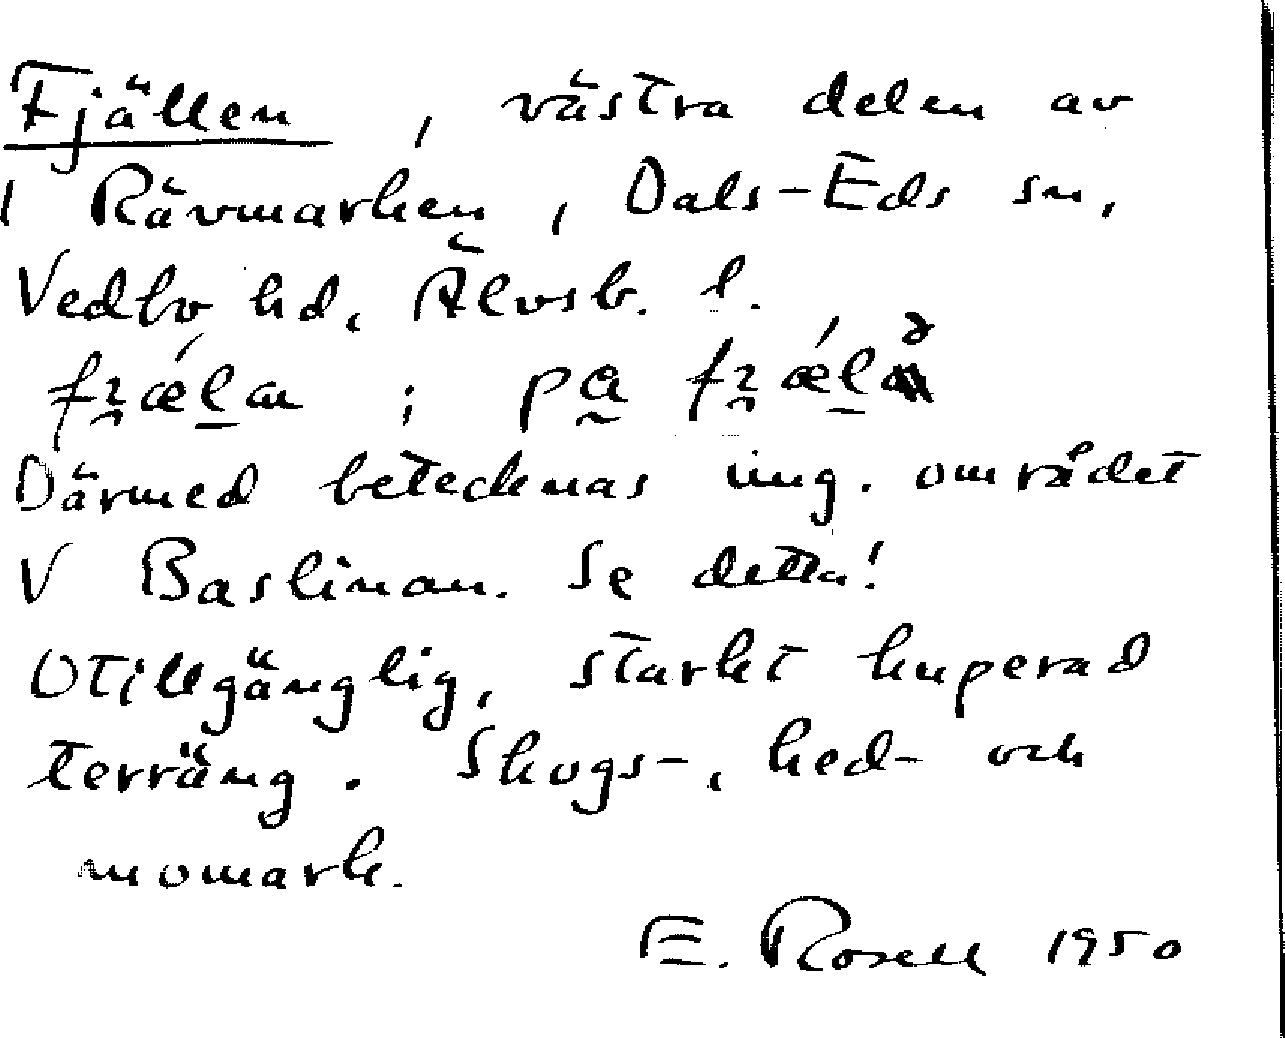 Fjällen, västra delen av
Rävmarken, Dals-Eds sn,
Vedbo hd, Älvsb. l.
; på
Därmed betecknas ung. området
V Baslinan. Se detta!
Otillgänglig, starkt kuperad
terräng. Skogs-, hed- och
momark.
E. Rosell 1950